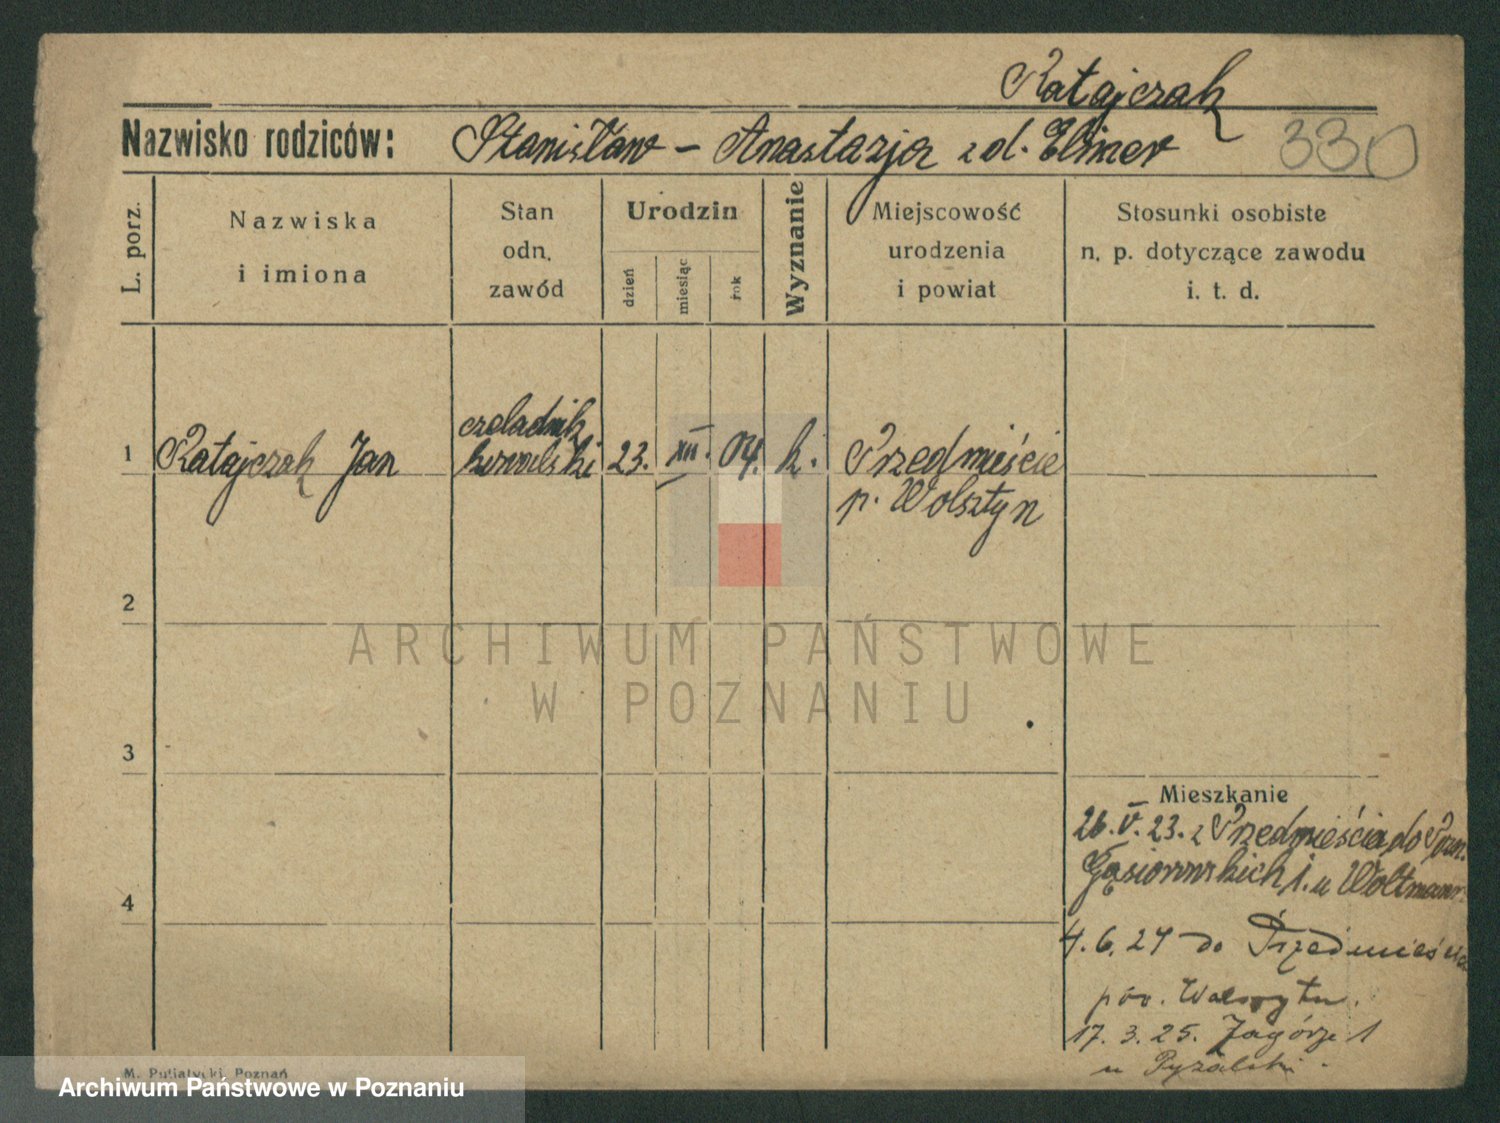 Ratajczak
Nazwisko rodziców: Stanisław - Anastazja z d. Elsner 330
L. porz.
Nazwiska
i imiona
Stan
odn.
zawód
Urodzin
dzień
miesiąc
rok
Wyznanie
Miejscowość
urodzenia
i powiat
Stosunki osobiste
n. p. dotyczące zawodu
i. t. d.
1 Ratajczak Jan czeladnik kowalski 23. XII. 04. k. Przedmieście
p. Wolsztyn
2
3
4
Mieszkanie
26. V. 23. z Przedmieścia do Pozn.
Gąsiorowskich 1. u Woltmann
4. 6. 24 do Przedmieścia
pow. Wolsztyn.
17. 3. 25. Zagórze 1
u Pyzalski.
M. Putiatycki, Poznań
ARCHIWUM PAŃSTWOWE
W POZNANIU
Archiwum Państwowe w Poznaniu